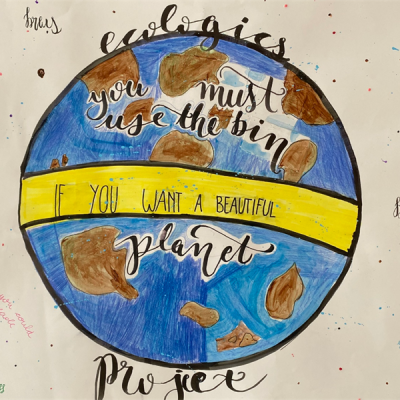 ecologics
you must
use the bin
IF YOU WANT A BEAUTIFUL
planet
project